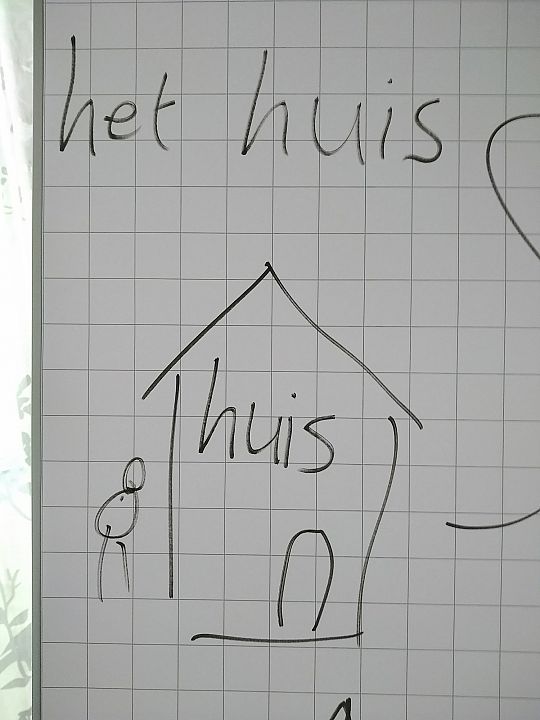 het huis
huis